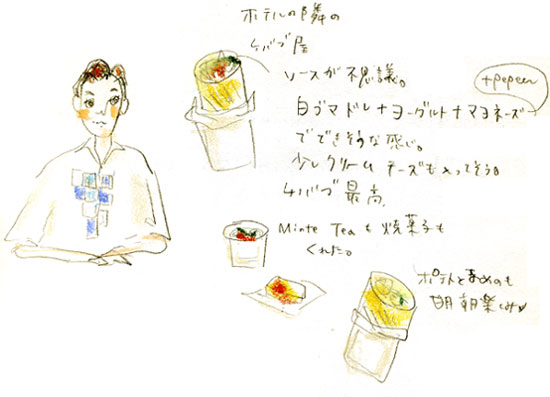 ホテルの隣の
ケバブ屋
ソースが不思議。
+pepper
白ゴマドレ+ヨーグルト+マヨネーズ
でできそうな感じ。
少しクリームチーズも入ってそう。
ケバブ最高。
Minte Teaも焼菓子も
くれた。
ポテトとまめのも
明朝楽しみ♥